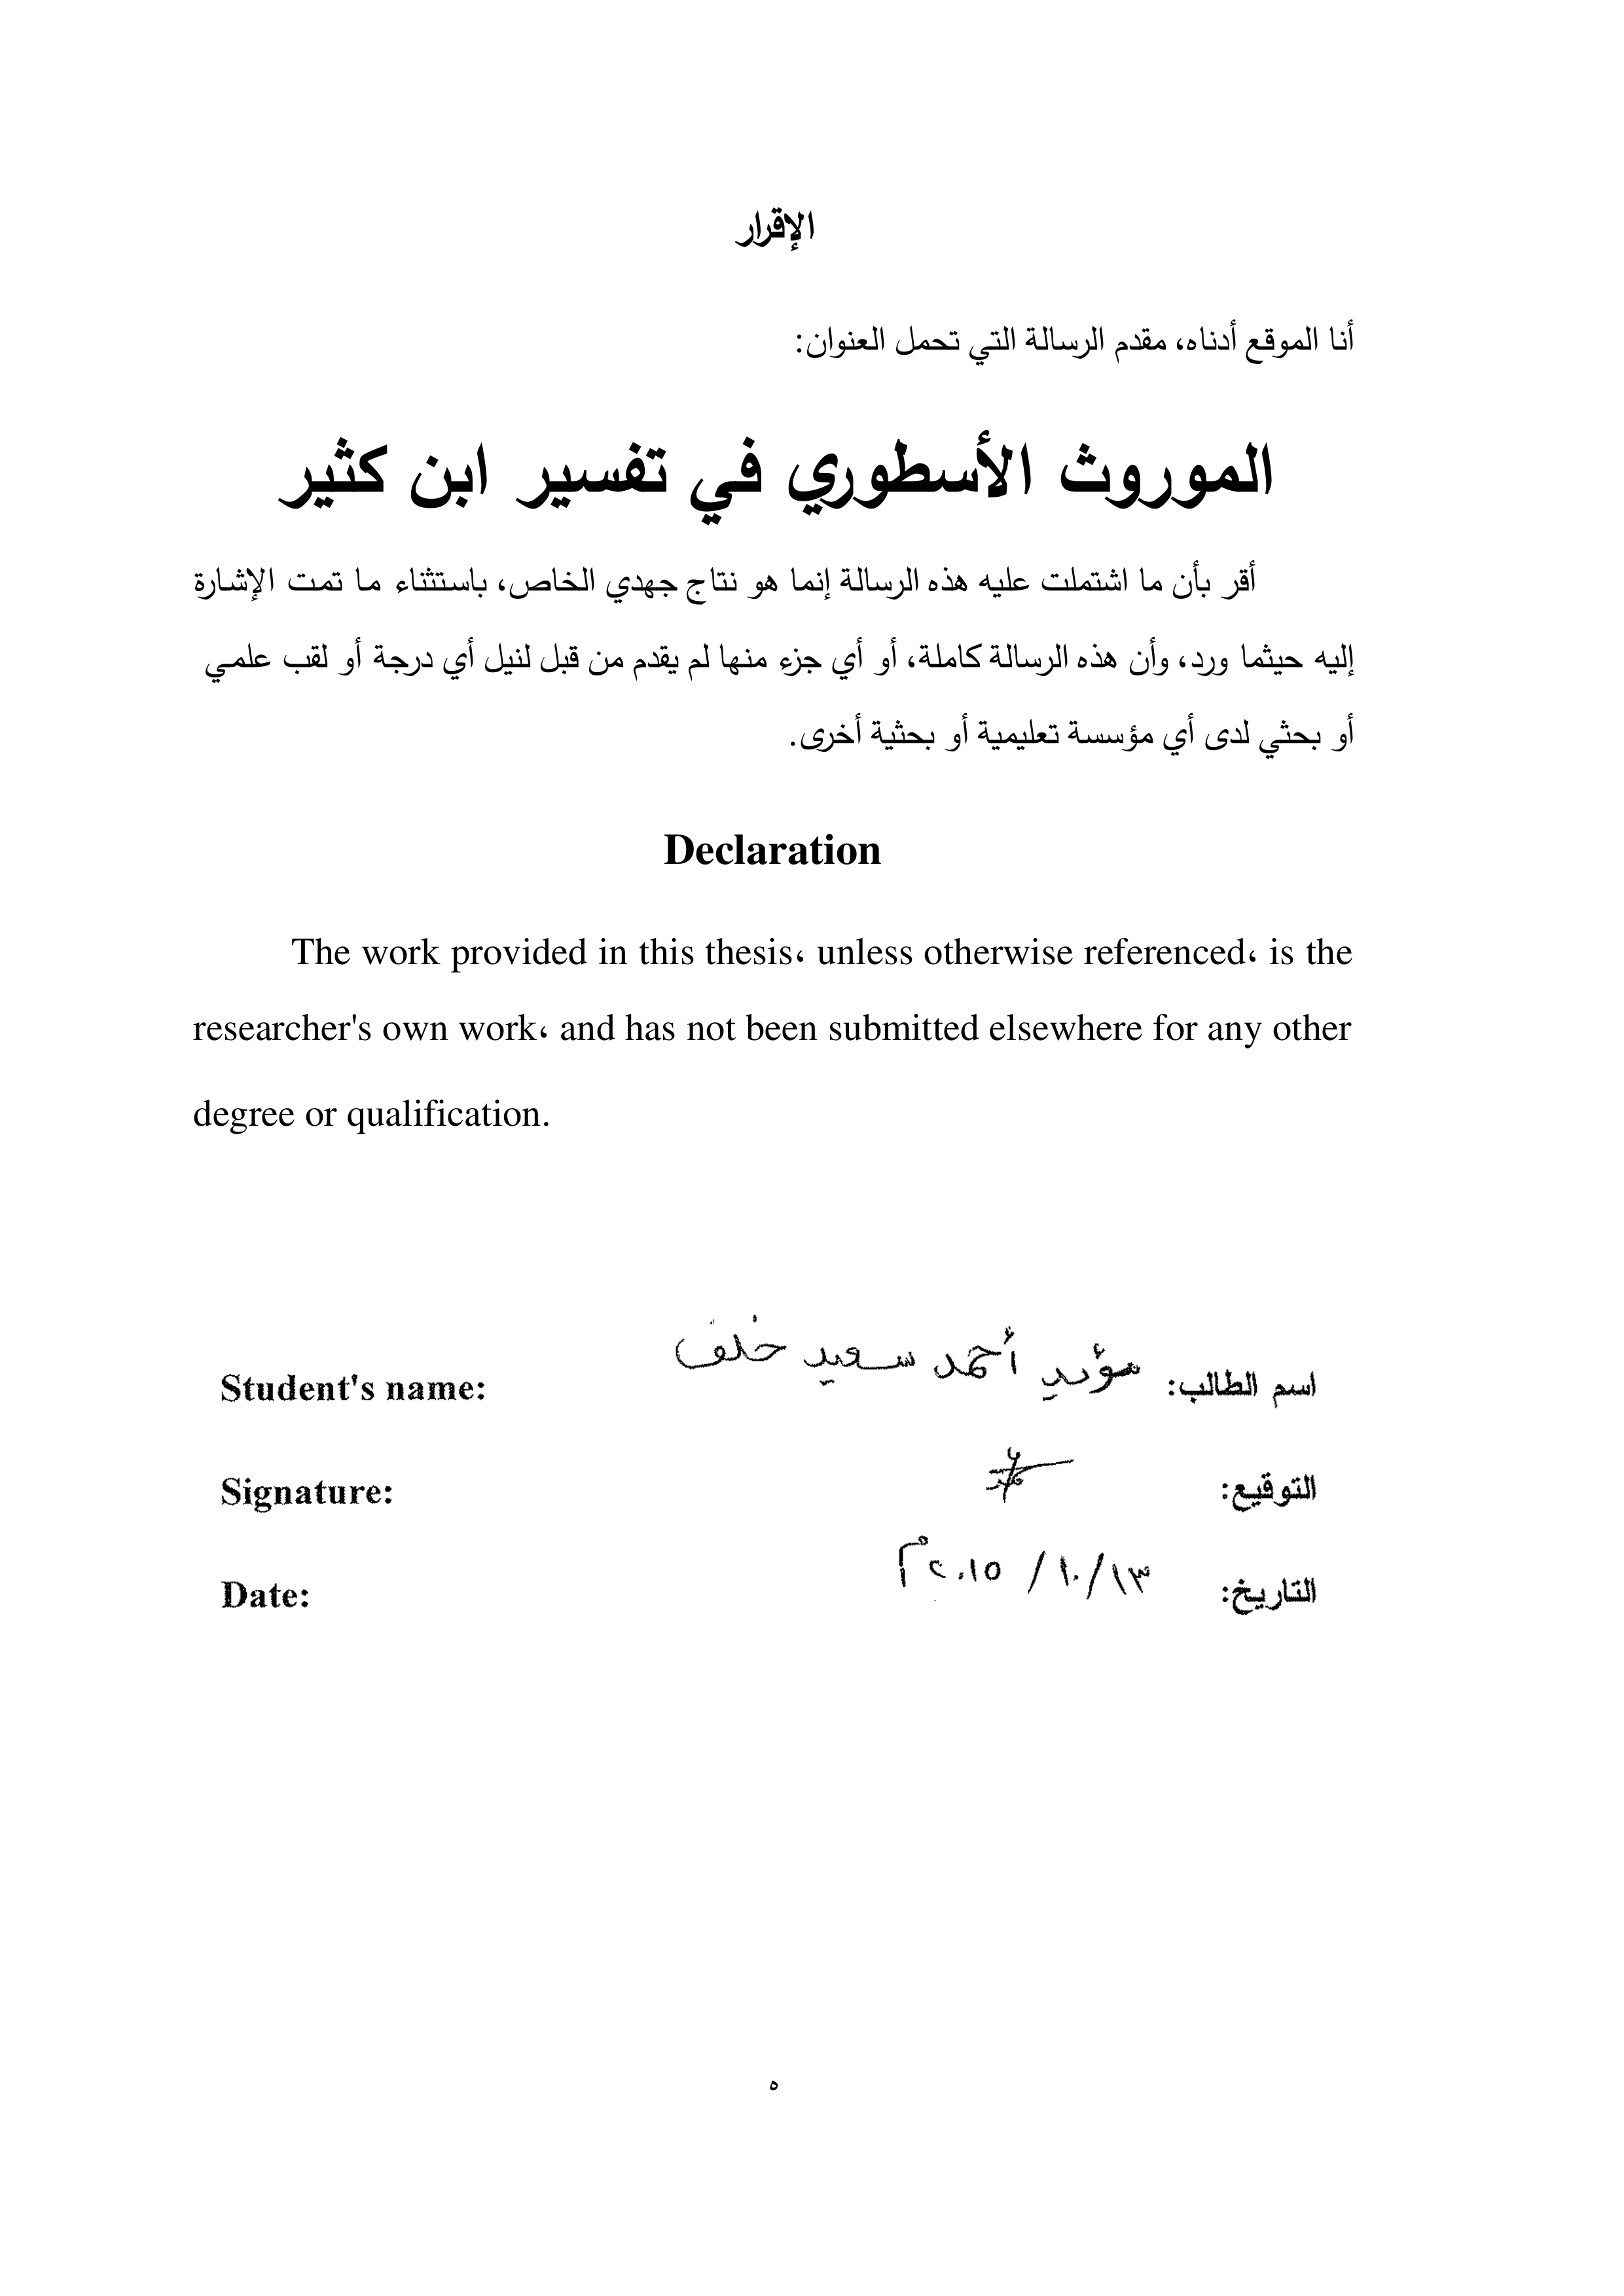 الإقرار
أنا الموقع أدناه، مقدم الرسالة التي تحمل العنوان:
الموروث الأسطوري في تفسير ابن كثير
أقر بأن ما اشتملت عليه هذه الرسالة إنما هو نتاج جهدي الخاص، باستثناء ما تمت الإشارة
إليه حيثما ورد، وأن هذه الرسالة كاملة، أو أي جزء منها لم يقدم من قبل لنيل أي درجة أو لقب علمي
أو بحثي لدى أي مؤسسة تعليمية أو بحثية أخرى.
Declaration
The work provided in this thesis، unless otherwise referenced، is the
researcher's own work، and has not been submitted elsewhere for any other
degree or qualification.
اسم الطالب: مؤيد أحمد سعيد خلف Student's name:
التوقيع: Signature:
التاريخ: ١٣/ ١٠/ ٢٠١٥م Date:
ه